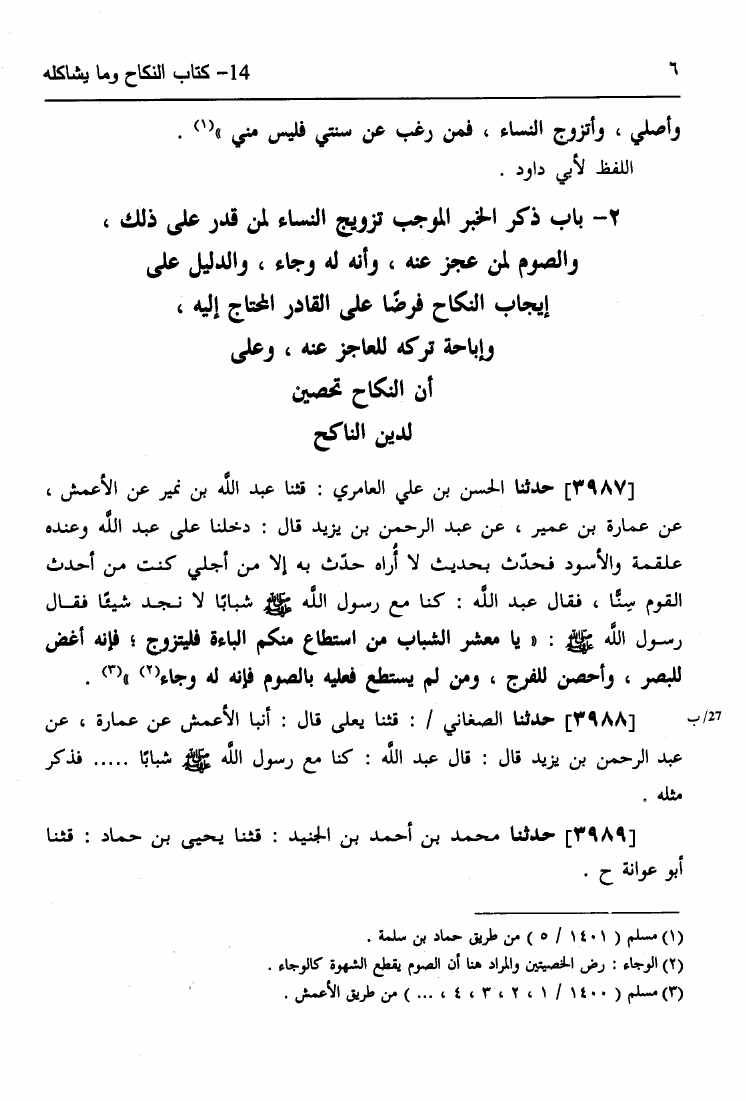 ٦ 14- كتاب النكاح وما يشاكله
وأصلي ، وأتزوج النساء ، فمن رغب عن سنتي فليس مني »(١) .
اللفظ لأبي داود .
٢- باب ذكر الخبر الموجب تزويج النساء لمن قدر على ذلك ،
والصوم لمن عجز عنه ، وأنه له وجاء ، والدليل على
إيجاب النكاح فرضًا على القادر المحتاج إليه ،
وإباحة تركه للعاجز عنه ، وعلى
أن النكاح تحصين
لدين الناكح
[٣٩٨٧] حدثنا الحسن بن علي العامري : قثنا عبد اللَّه بن نمير عن الأعمش ،
عن عمارة بن عمير ، عن عبد الرحمن بن يزيد قال : دخلنا على عبد اللَّه وعنده
علقمة والأسود فحدّث بحديث لا أُراه حدّث به إلا من أجلي كنت من أحدث
القوم سِنًّا ، فقال عبد اللَّه : كنا مع رسول اللَّه ﷺ شبابًا لا نجد شيئًا فقال
رسول اللَّه ﷺ : « يا معشر الشباب من استطاع منكم الباءة فليتزوج ؛ فإنه أغض
للبصر ، وأحصن للفرج ، ومن لم يستطع فعليه بالصوم فإنه له وجاء(٢) »(٣) .
[٣٩٨٨] حدثنا الصغاني / : قثنا يعلى قال : أنبا الأعمش عن عمارة ، عن
27/ب
عبد الرحمن بن يزيد قال : قال عبد اللَّه : كنا مع رسول اللَّه ﷺ شبابًا ..... فذكر
مثله .
[٣٩٨٩] حدثنا محمد بن أحمد بن الجنيد : قثنا يحيى بن حماد : قثنا
أبو عوانة ح .
(١) مسلم ( ١٤٠١ / ٥ ) من طريق حماد بن سلمة .
(٢) الوجاء : رض الخصيتين والمراد هنا أن الصوم يقطع الشهوة كالوجاء .
(٣) مسلم ( ١٤٠٠ / ١ ، ٢ ، ٣ ، ٤ ، ... ) من طريق الأعمش .